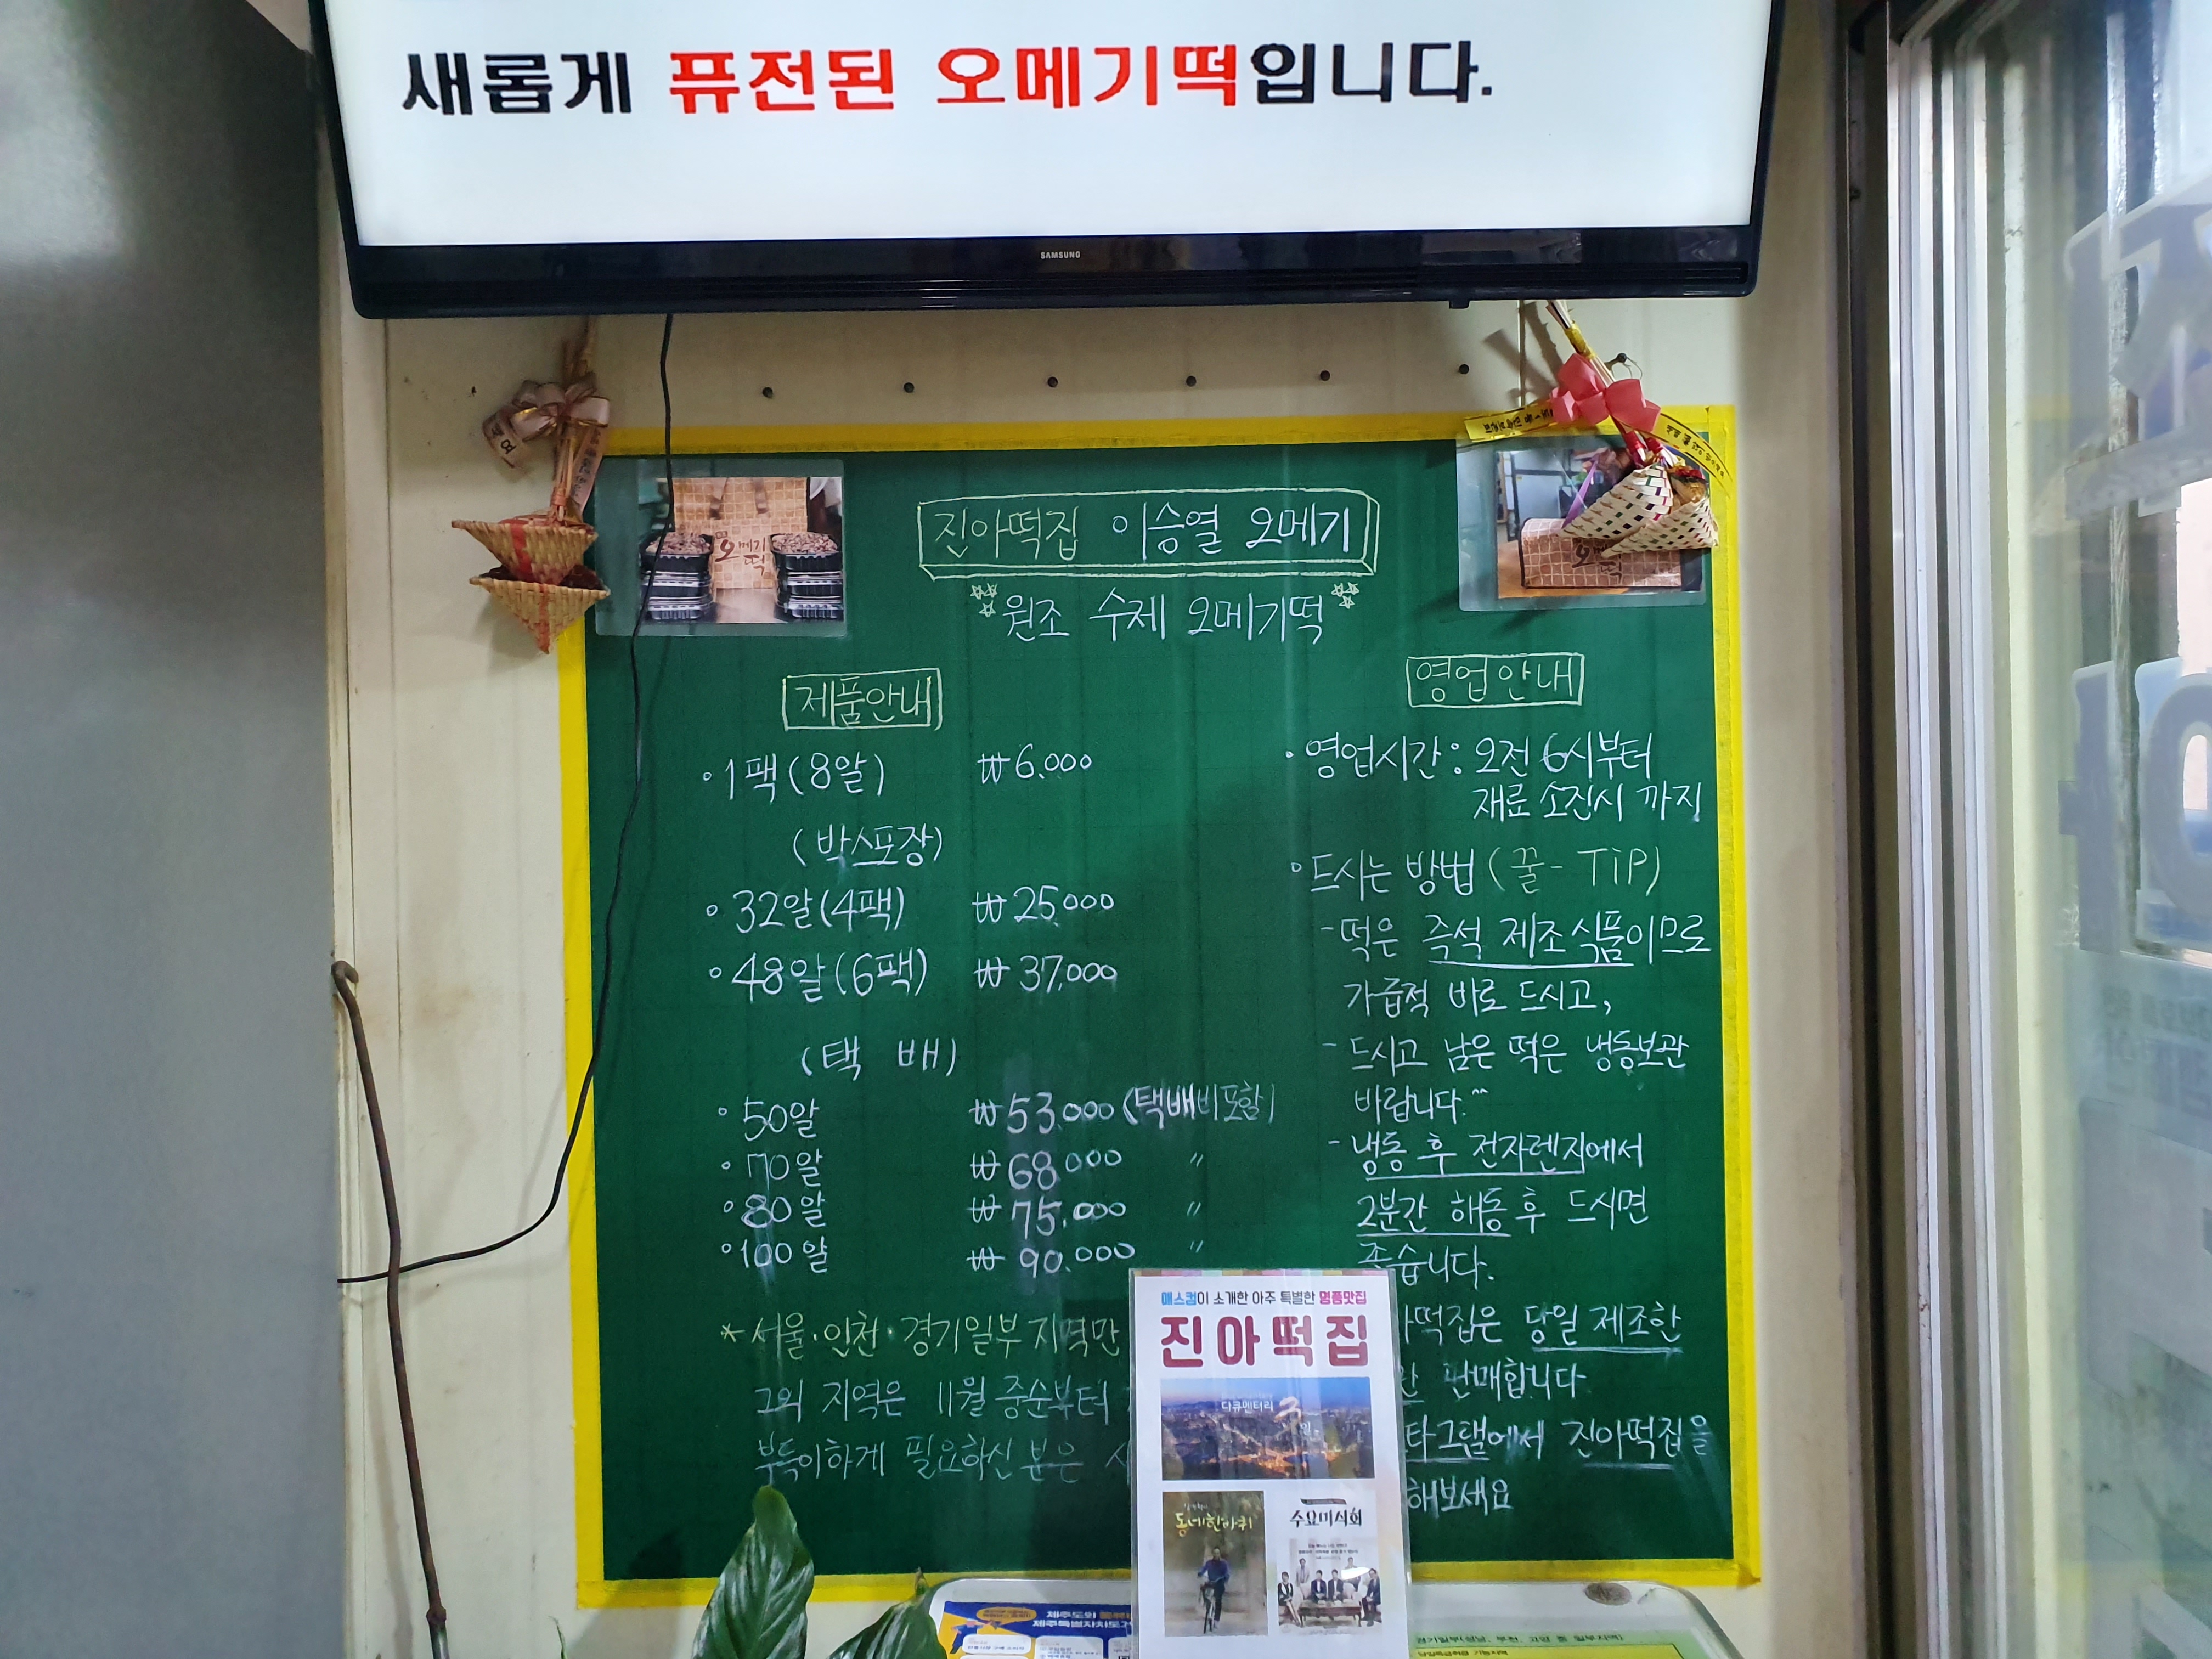 새롭게 퓨전된 오메기떡입니다.
SAMSUNG
오메기
떡
진아떡집 이승열 오메기
원조 수제 오메기떡
제품안내
1팩(8알) ₩6.000
(박스포장)
32알(4팩) ₩25.000
48알(6팩) ₩37.000
(택 배)
50알 ₩53.000 (택배비포함)
70알 ₩68.000 〃
80알 ₩75.000 〃
100알 ₩90.000 〃
*서울·인천·경기일부지역만
그외 지역은 11월 중순부터
부득이하게 필요하신 분은
영업안내
영업시간: 오전 6시부터
재료 소진시 까지
드시는 방법(꿀-TiP)
-떡은 즉석 제조식품이므로
가급적 바로 드시고,
-드시고 남은 떡은 냉동보관
바랍니다.^^
-냉동 후 전자렌지에서
2분간 해동 후 드시면
좋습니다.
떡집은 당일 제조한
판매합니다
타그램에서 진아떡집을
해보세요
매스컴이 소개한 아주 특별한 명품맛집
진아떡집
다큐멘터리 3일
동네한바퀴
수요미식회
제주도의
제주특별자치도
경기일부(성남, 부천, 고양 등 일부지역)